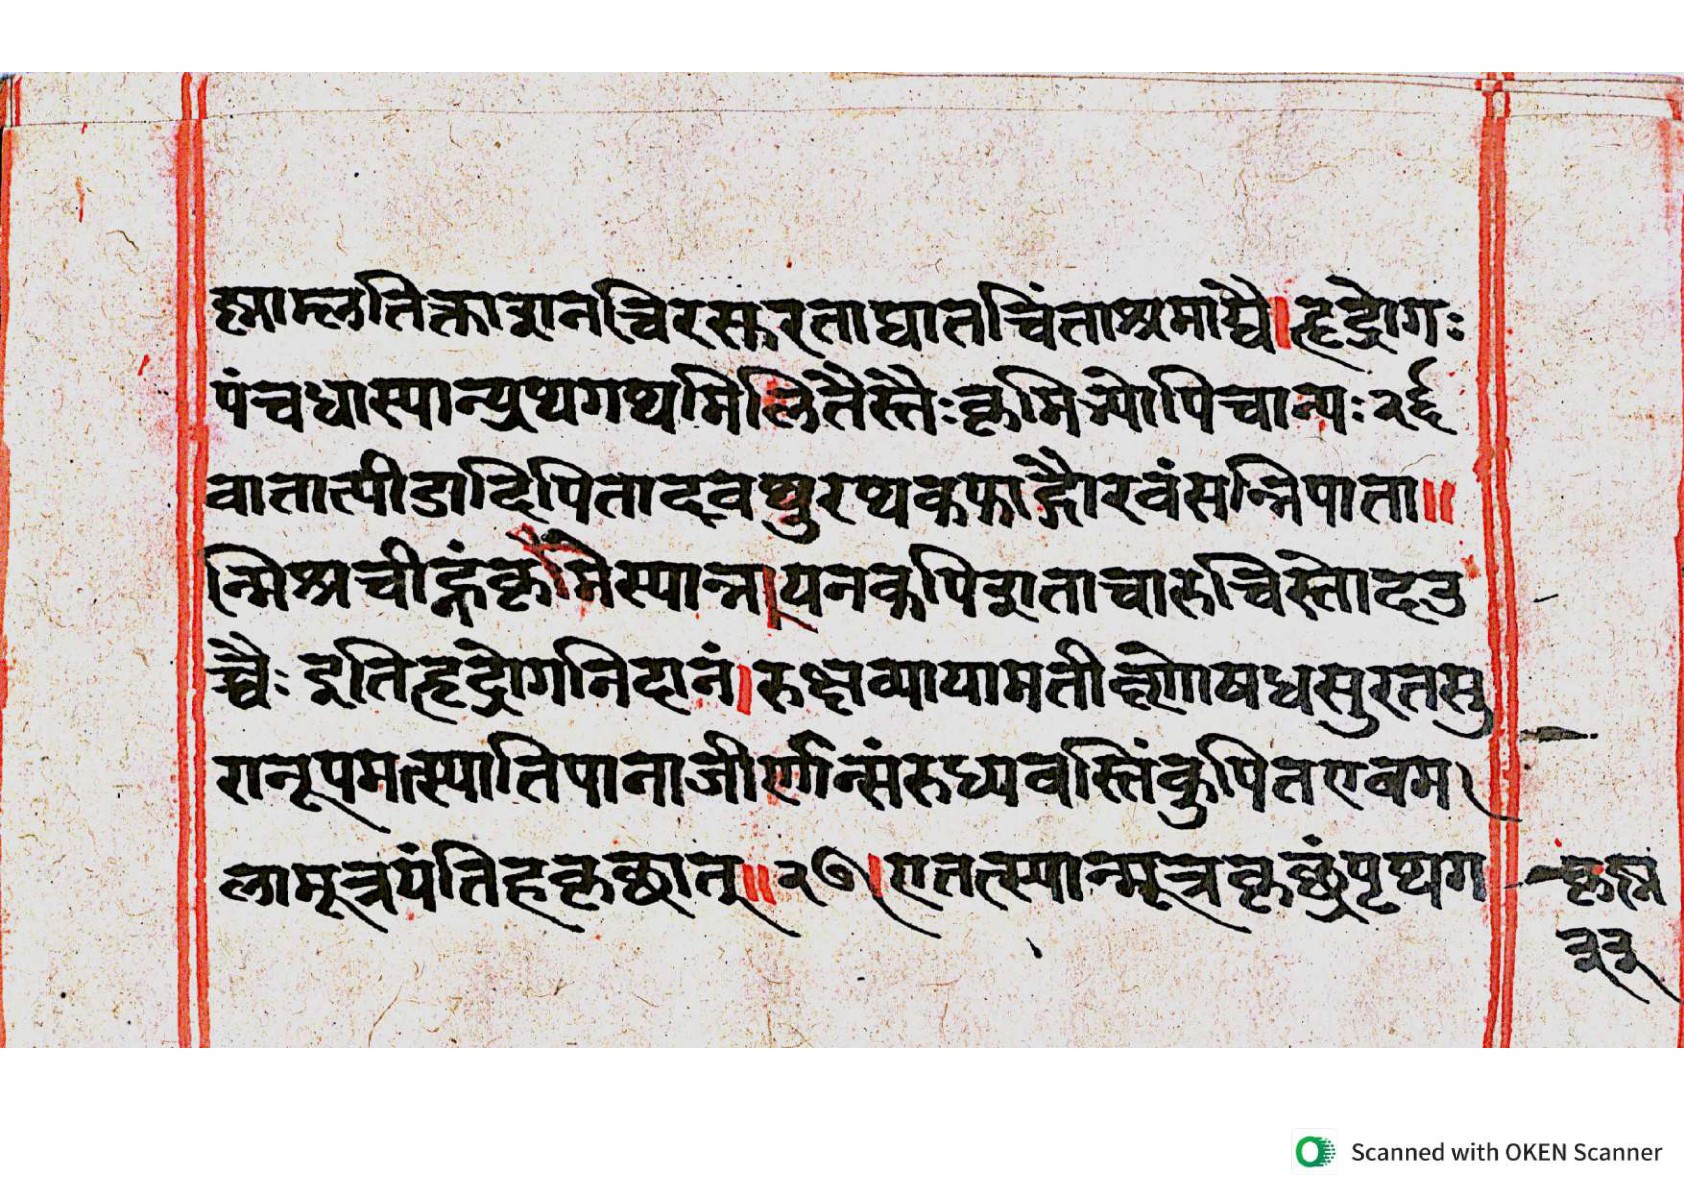 ह्माम्लतिक्ताशनचिरस्करताघातचिंताश्रमाद्यै। हृद्रोगः
पंचधास्यान्पृथगथमिलितैस्तैःकृमिभ्योपिचान्यः२६
वातात्पीडादिपितादवथुरथकफाद्गौरवंसन्निपाता॥
न्मिश्रचीह्नंकृमिस्यान्नायनकपिशताचारुचिस्तोदउ
च्चैः इतिहृद्रोगनिदानं। रुक्षव्यायामतीक्ष्णोषधसुरतसु
रानूपमत्स्यातिपानाजीर्णान्संरुध्यवस्तिंकुपितएवम
लामूत्रयंतिहकृछ्रात्॥२७।एतत्स्यान्मूत्रकृछ्रंपृथग
कृह्म
२२
Scanned with OKEN Scanner